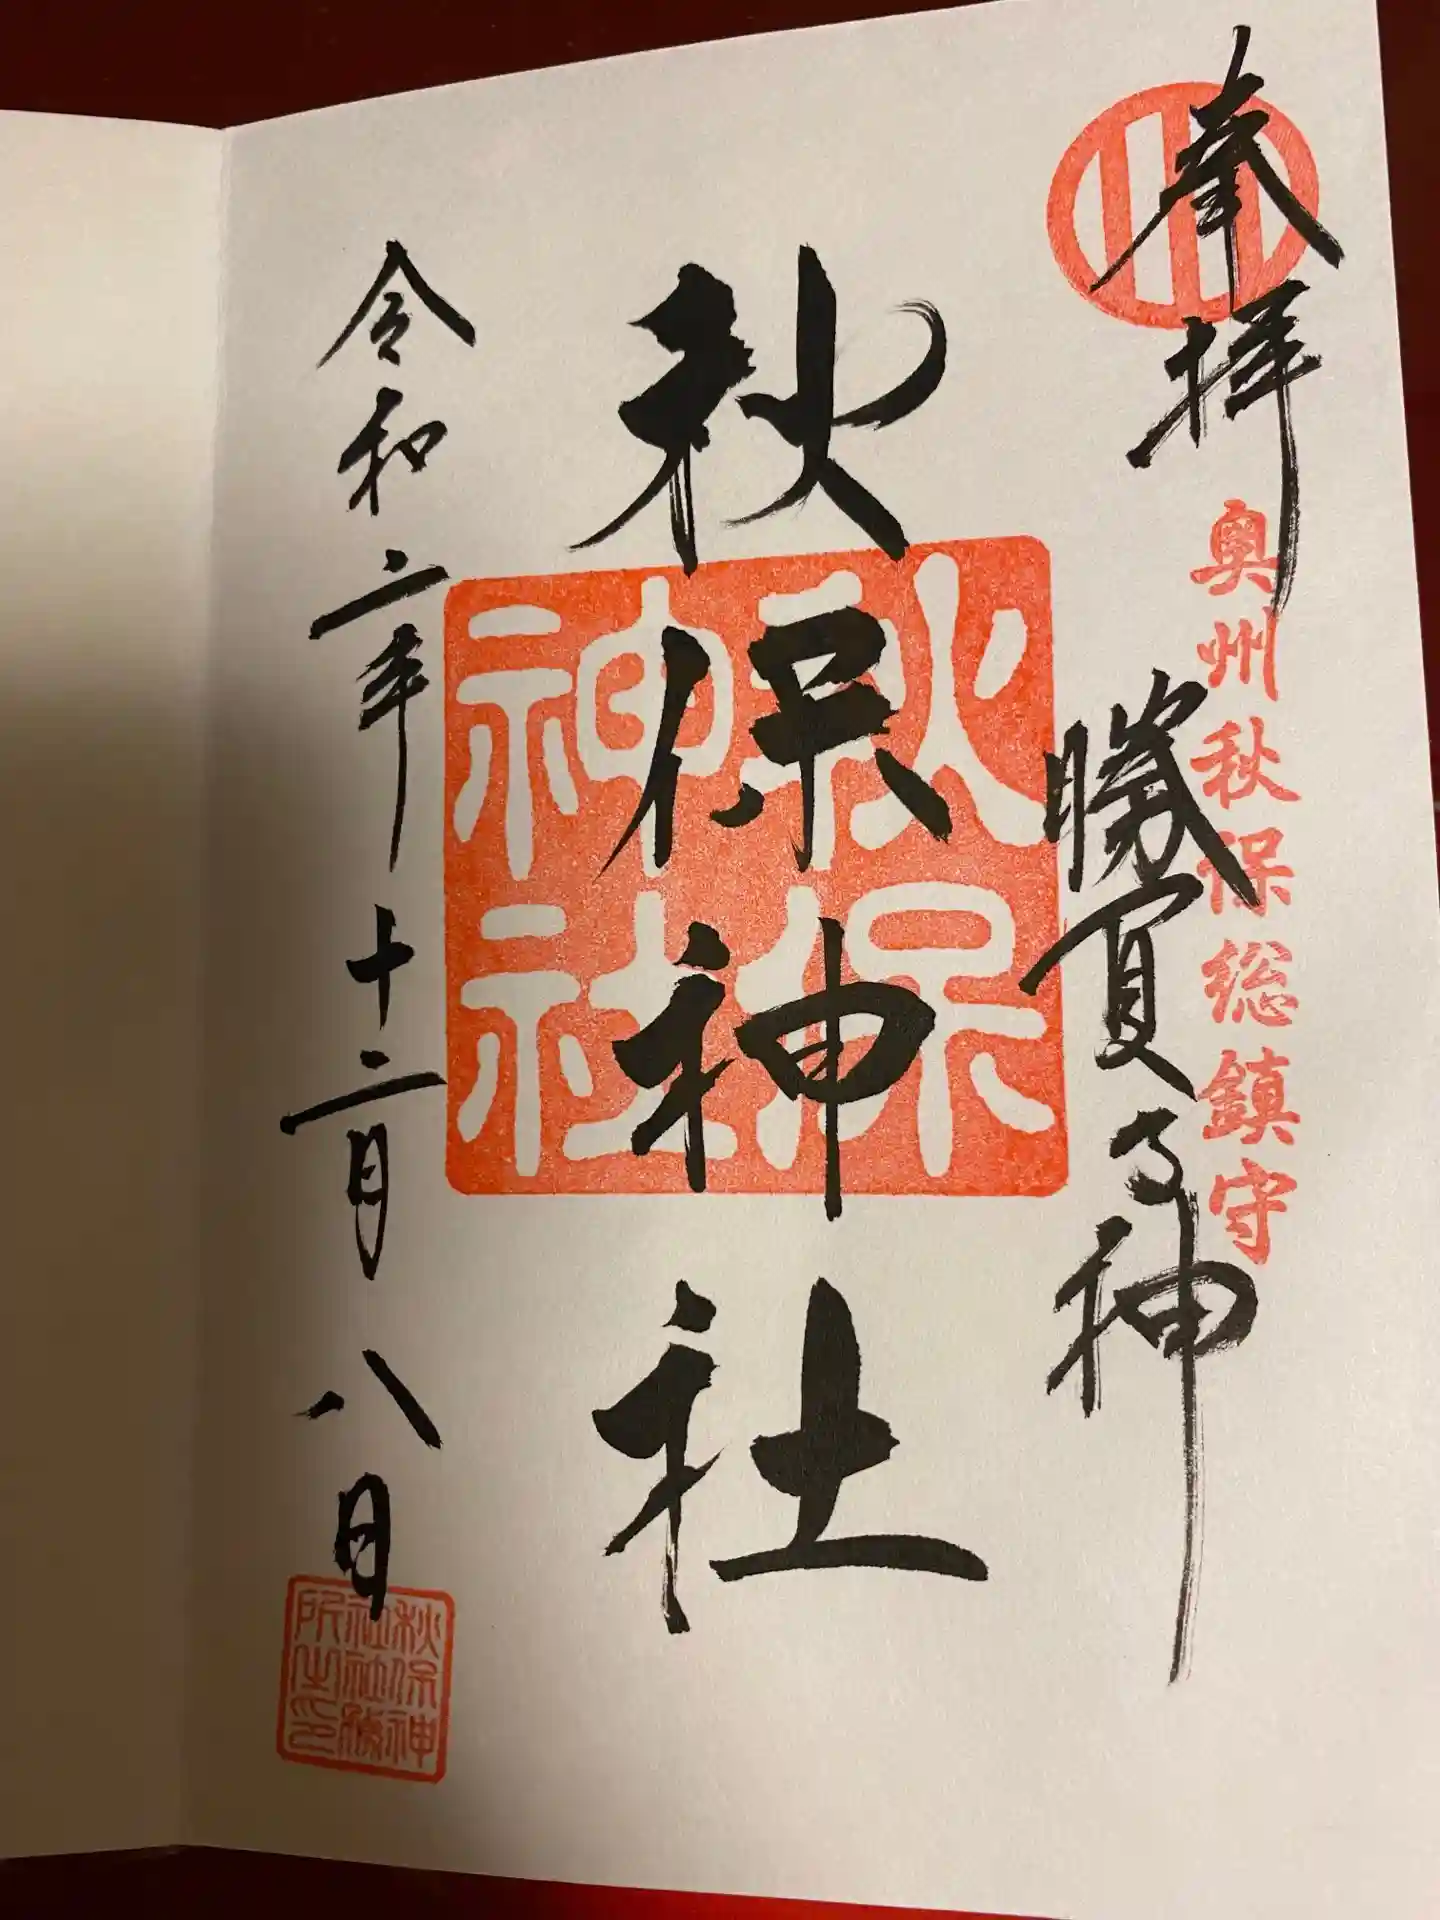 奉拝
奥州秋保総鎮守
勝負の神
秋保神社
秋保
神社
令和二年十二月八日
秋保神
社社務
所之印